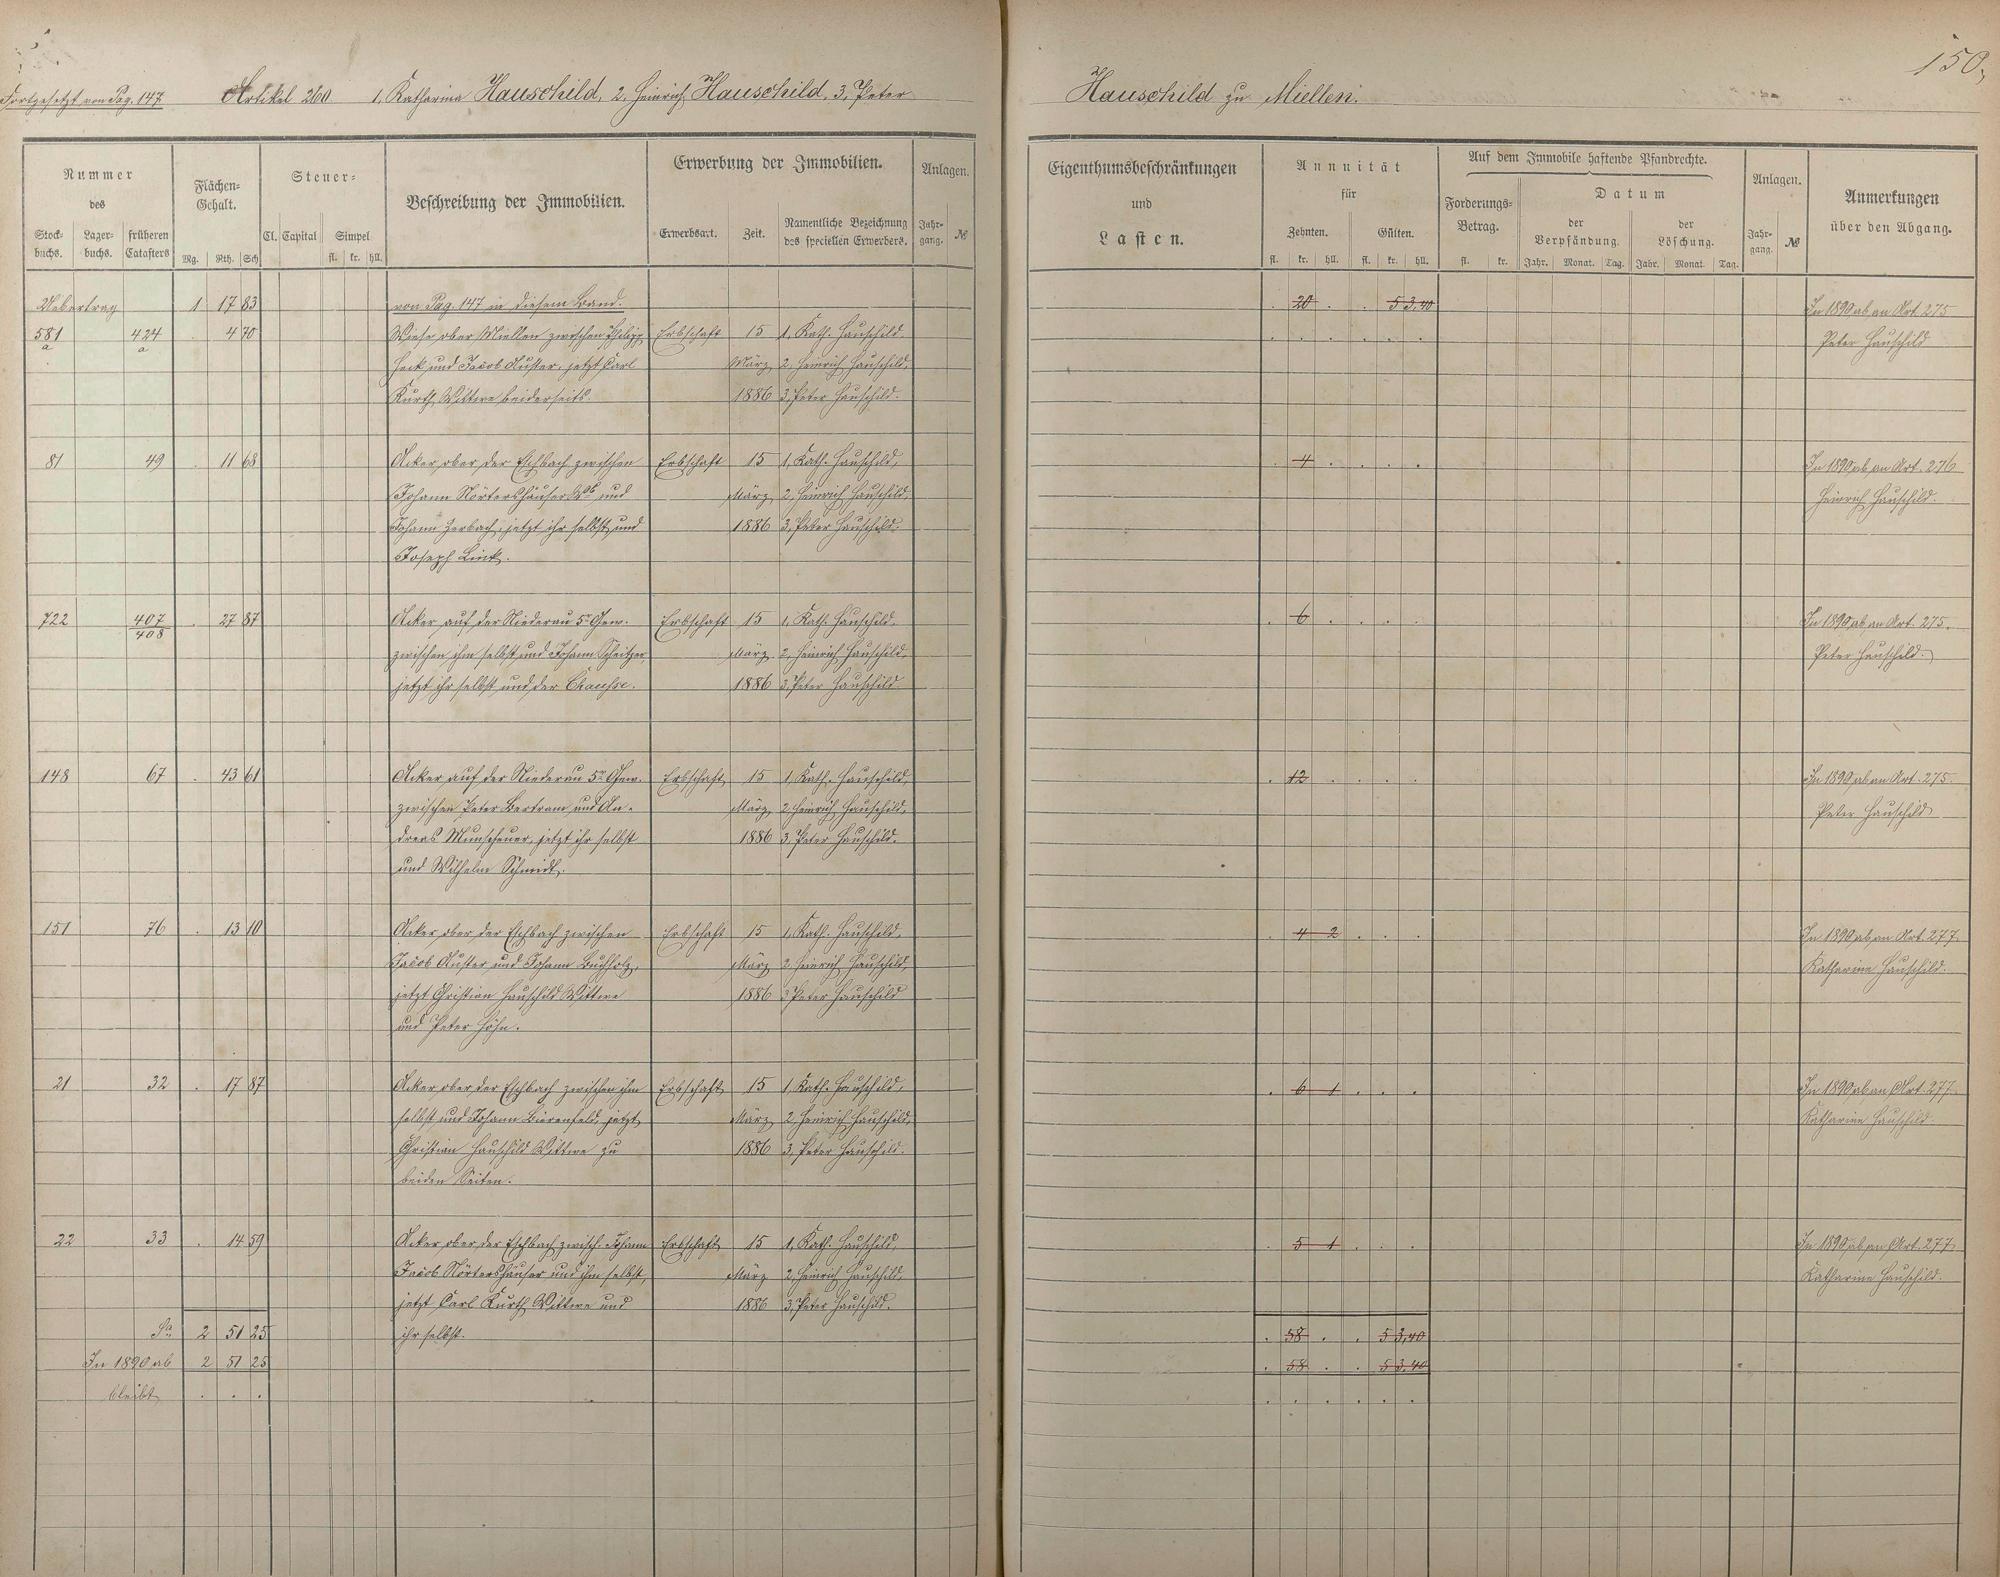 150,
Fortgesetzt von Pag. 147 Artikel 260 1, Katharina Hauschild, 2, Heinrich Hauschild, 3, Peter Hauschild zu Miellen.
Nummer des
Stock-buchs. Lager-buchs. früheren Catasters
Flächen-Gehalt.
Mg. Rth. Sch
Steuer-
Cl. Capital Simpel
fl. kr. hll.
Beschreibung der Immobilien.
Erwerbung der Immobilien.
Erwerbsart. Zeit. Namentliche Bezeichnung des speciellen Erwerbers.
Anlagen.
Jahr-gang. №
Eigenthumsbeschränkungen
und
Lasten.
Annuität
für
Zehnten. Gülten.
fl. kr. hll. fl. kr. hll.
Auf dem Immobile haftende Pfandrechte.
Forderungs-Betrag. Datum
fl. kr.
der Verpfändung. der Löschung.
Jahr. Monat. Tag. Jahr. Monat. Tag.
Anlagen.
Jahr-gang. №
Anmerkungen
über den Abgang.
Uebertrag 1 17 83 von Pag. 147 in diesem Band. . 20 . . 5 3,40 In 1890 ab an Art. 275
581 a 424 a . 4 70 Wiese ober Miellen zwischen Philipp Erbschaft 15 1, Kath. Hauschild. . . . . . . Peter Hauschild
Heck und Jacob Auster, jetzt Carl März 2, Heinrich Hauschild,
Kurth Wittwe beiderseits. 1886 3, Peter Hauschild.
81 49 . 11 68 Acker ober der Eschbach zwischen Erbschaft 15 1, Kath. Hauschild, . 4 . . . . In 1890 ab an Art. 276
Johann Nörtershäuser Wb und März 2, Heinrich Hauschild, Heinrich Hauschild.
Johann Zerbach, jetzt ihr selbst und 1886 3, Peter Hauschild.
Joseph Link.
722 407/408 . 27 87 Acker auf der Niederau 5r Gew. Erbschaft 15 1, Kath. Hauschild, . 6 . . . . In 1890 ab an Art. 275.
zwischen ihm selbst und Johann März 2, Heinrich Hauschild, Peter Hauschild.
jetzt ihr selbst und der Chausse. 1886 3, Peter Hauschild.
148 67 . 43 61 Acker auf der Niederau 5r Gew. Erbschaft 15 1, Kath. Hauschild, . 12 . . . . In 1890 ab an Art. 275.
zwischen Peter Bertram und An- März 2, Heinrich Hauschild, Peter Hauschild
dreas Munscheuer, jetzt ihr selbst 1886 3, Peter Hauschild.
und Wilhelm Schmidt.
151 76 . 13 10 Acker ober der Eschbach zwischen Erbschaft 15 1, Kath. Hauschild, . 4 2 . . . In 1890 ab an Art. 277
Jacob Auster und Johann Buchholz, März 2, Heinrich Hauschild, Katharina Hauschild.
jetzt Christian Hauschild Wittwe 1886 3 Peter Hauschild
und Peter Höhn.
21 32 . 17 87 Acker ober der Eschbach zwischen ihm Erbschaft 15 1, Kath. Hauschild, . 6 1 . . . In 1890 ab an Art. 277
selbst und Johann Birrenfeld, jetzt März 2, Heinrich Hauschild, Katharina Hauschild.
Christian Hauschild Wittwe zu 1886 3, Peter Hauschild.
beiden Seiten.
22 33 . 14 59 Acker ober der Eschbach zwisch. Johann Erbschaft 15 1, Kath. Hauschild, . 5 1 . . . In 1890 ab an Art. 277
Jacob Nörtershäuser und ihm selbst, März 2, Heinrich Hauschild, Katharina Hauschild.
jetzt Carl Kurth Wittwe und 1886 3, Peter Hauschild.
Sa 2 51 25 ihr selbst. . 58 . . 5 3,40
In 1890 ab 2 51 25 . 58 . . 5 3,40
bleibt . . . . . . . . .